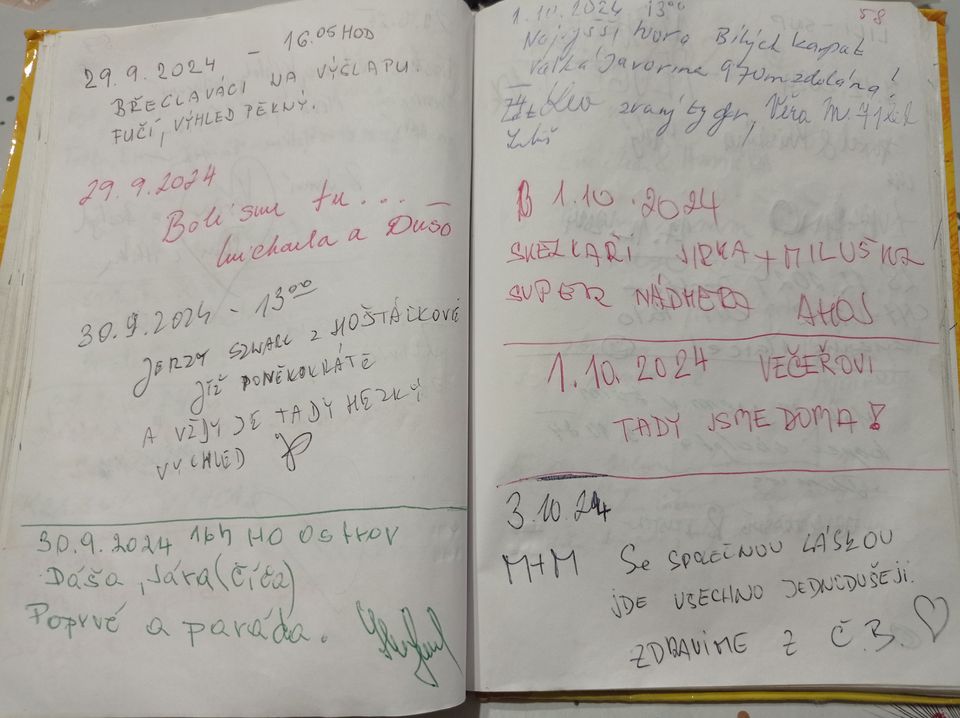 29.9.2024 – 16.05 HOD
BŘECLAVÁCI NA VÝČLAPU.
FUČÍ, VÝHLED PĚKNÝ.
29.9.2024
Boli sme tu...
Michaela a Dušo
30.9.2024 - 13⁰⁰
JERZY SZWARC Z HOŠŤÁLKOVÉ
JIŽ PONĚKOKRÁTE
A VŽDY JE TADY HEZKÝ
VÝCHLED
30.9.2024 16h HO OSTROV
Dáša, Jára (Číča)
Poprvé a paráda.
58
1.10.2024 13⁰⁰
Nejvyšší hora Bílých Karpat
Velká Javorina 970m zdolána!
Leo zvaný tygr, Věra M.
1.10.2024
JIRKA + MILUŠKA
SUPER NÁDHERA AHOJ
1.10.2024 VEČEŘOVI
TADY JSME DOMA!
3.10.2024
M+M SE SPOLEČNOU LÁSKOU
JDE VŠECHNO JEDNODUŠEJI.
ZDRAVÍME Z Č.B.